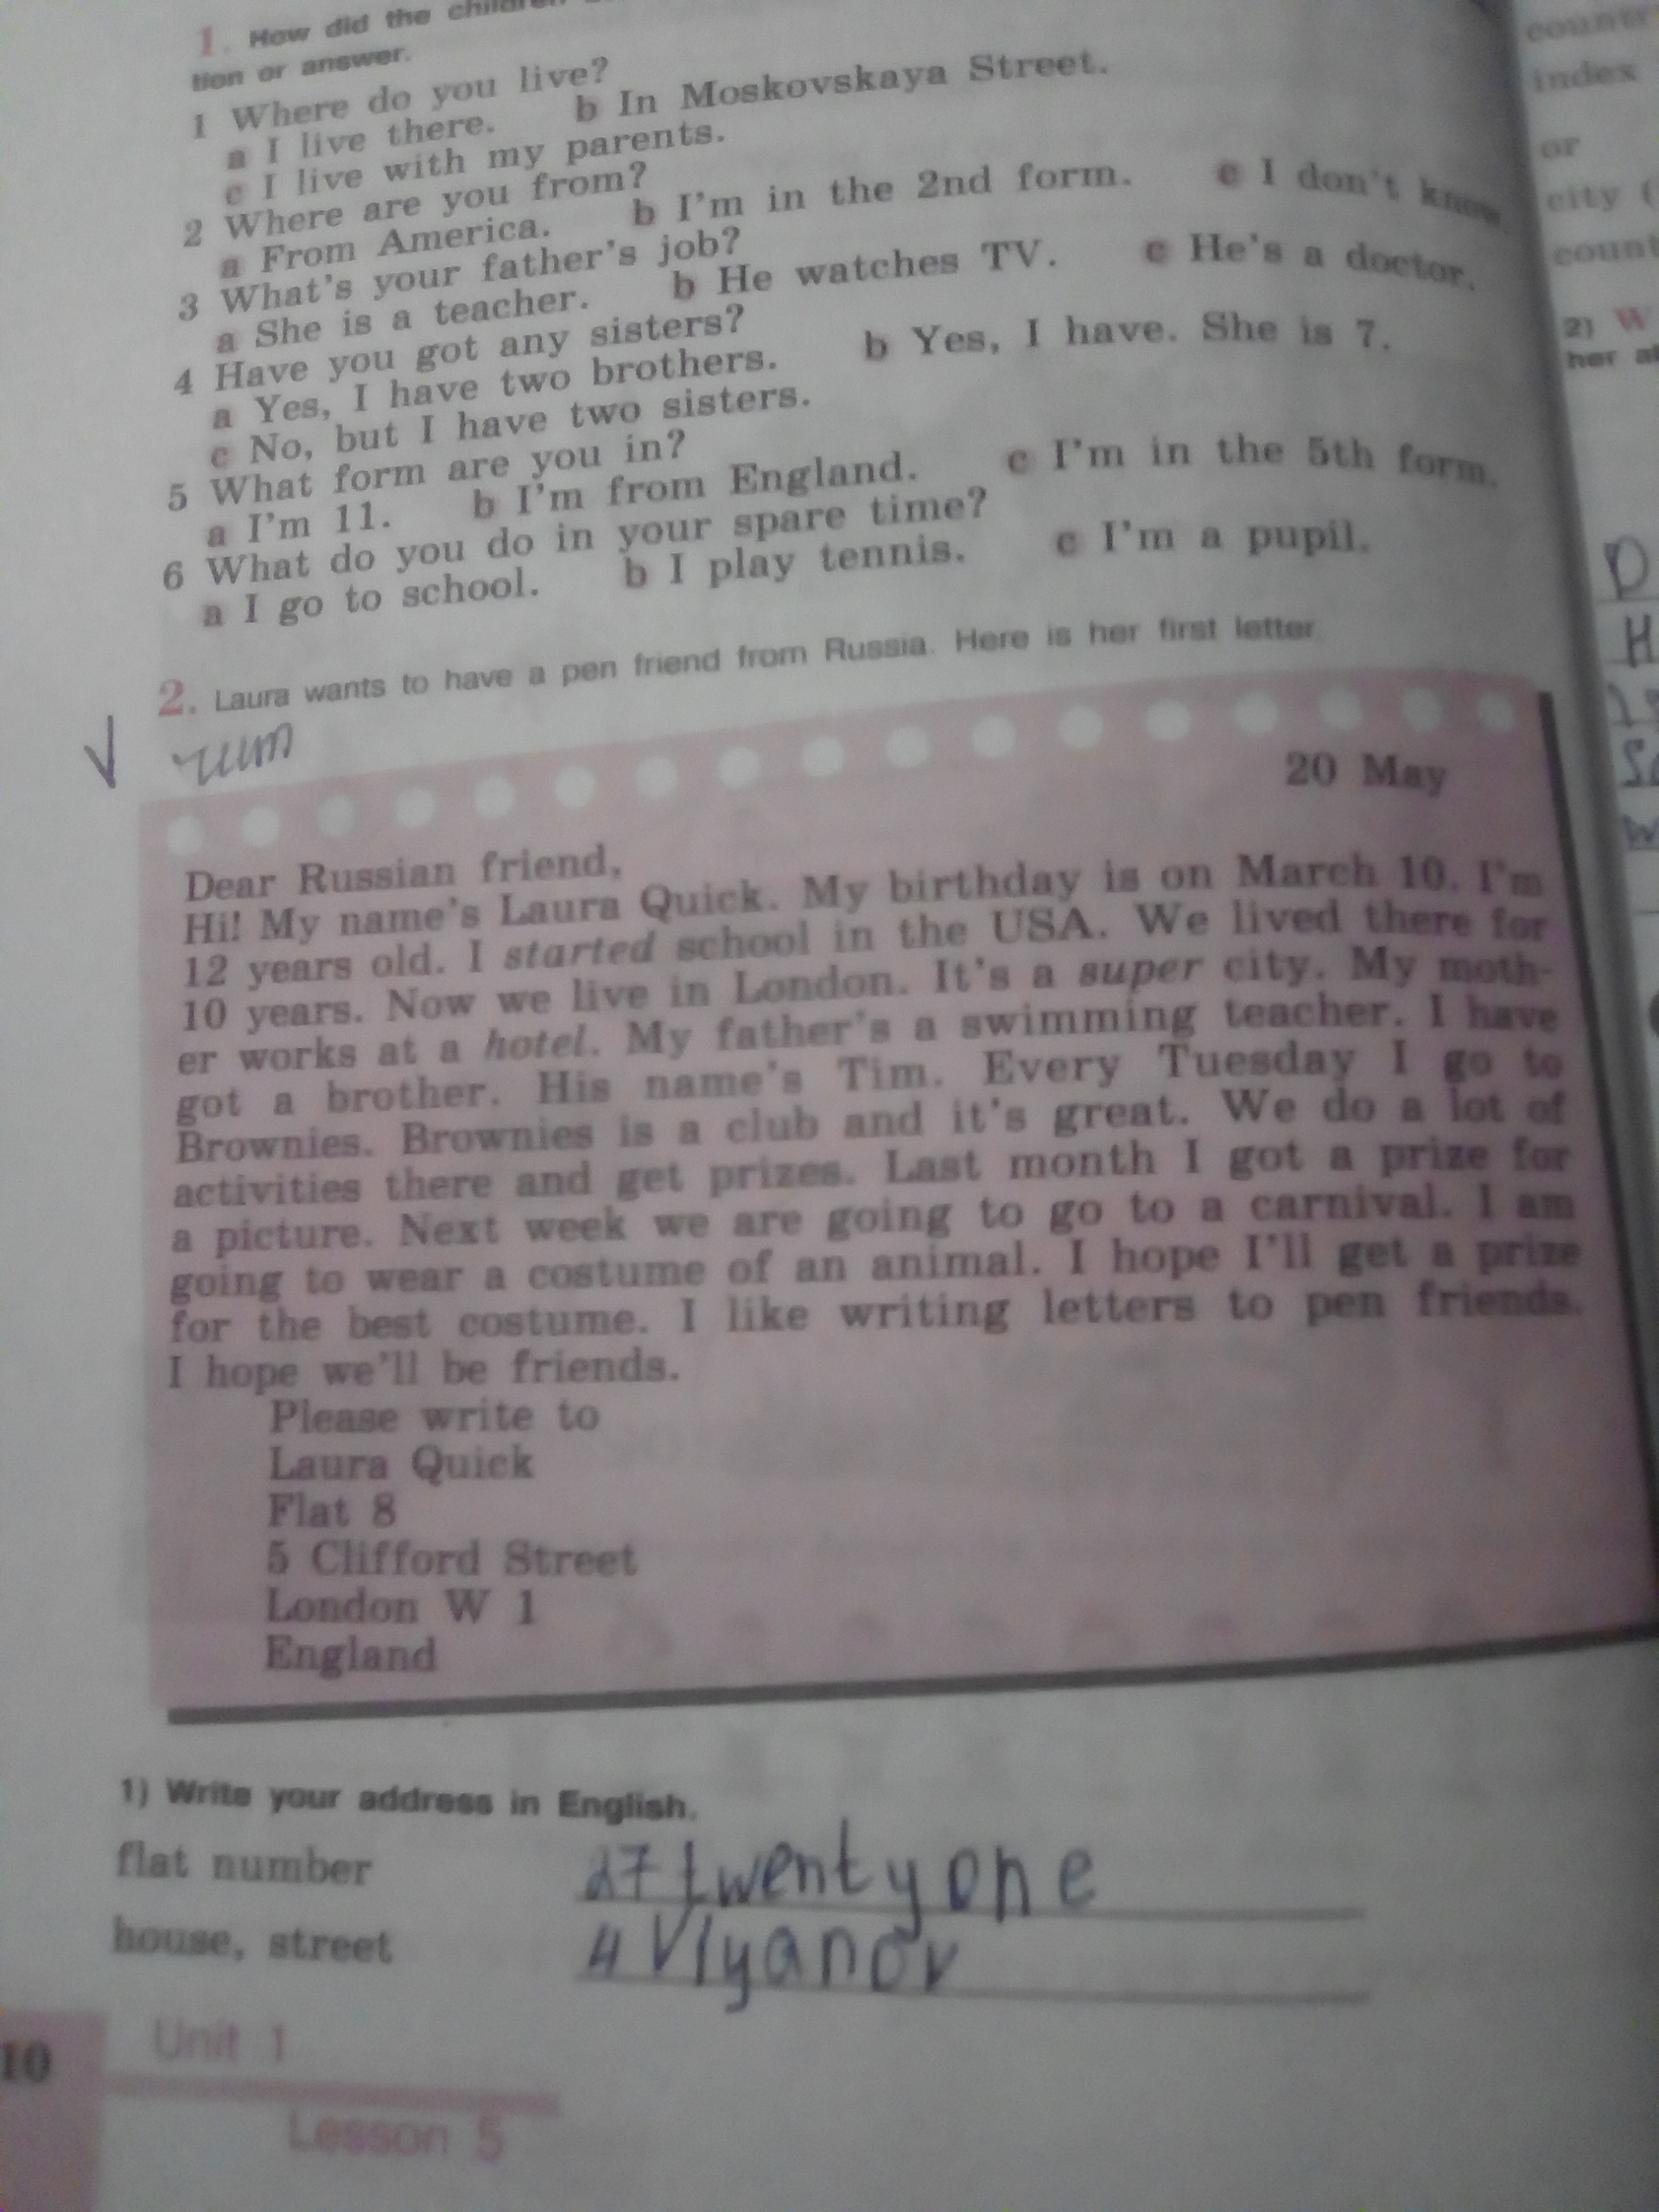 1. How did the children
tion or answer.
1 Where do you live?
a I live there. b In Moskovskaya Street.
c I live with my parents.
2 Where are you from?
a From America. b I'm in the 2nd form. c I don't know.
3 What's your father's job?
a She is a teacher. b He watches TV. c He's a doctor.
4 Have you got any sisters?
a Yes, I have two brothers. b Yes, I have. She is 7.
c No, but I have two sisters.
5 What form are you in?
a I'm 11. b I'm from England. c I'm in the 5th form.
6 What do you do in your spare time?
a I go to school. b I play tennis. c I'm a pupil.
2. Laura wants to have a pen friend from Russia. Here is her first letter.
20 May
Dear Russian friend,
Hi! My name's Laura Quick. My birthday is on March 10. I'm
12 years old. I started school in the USA. We lived there for
10 years. Now we live in London. It's a super city. My moth-
er works at a hotel. My father's a swimming teacher. I have
got a brother. His name's Tim. Every Tuesday I go to
Brownies. Brownies is a club and it's great. We do a lot of
activities there and get prizes. Last month I got a prize for
a picture. Next week we are going to go to a carnival. I am
going to wear a costume of an animal. I hope I'll get a prize
for the best costume. I like writing letters to pen friends.
I hope we'll be friends.
Please write to
Laura Quick
Flat 8
5 Clifford Street
London W 1
England
1) Write your address in English.
flat number 27 twenty one
house, street 4 Vlyanov
10 Unit 1
Lesson 5
index
or
city (
2) W
her